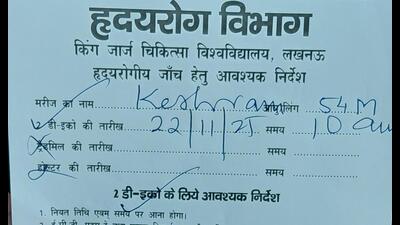 हृदयरोग विभाग
किंग जार्ज चिकित्सा विश्वविद्यालय, लखनऊ
हृदयरोगीय जाँच हेतु आवश्यक निर्देश
मरीज का नाम Keshram आयु/लिंग 54 M
2 डी-इको की तारीख 22/11/25 समय 10 am
ट्रेडमिल की तारीख समय
होल्टर की तारीख समय
2 डी-इको के लिये आवश्यक निर्देश
1. नियत तिथि एवम् समय पर आना होगा।